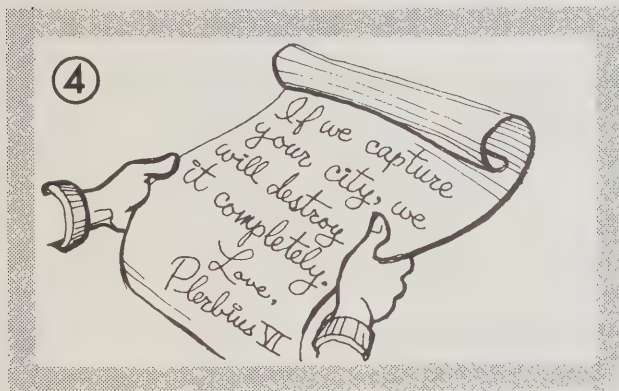 4
If we capture
your city, we
will destroy
it completely.
Love,
Plerbius VI